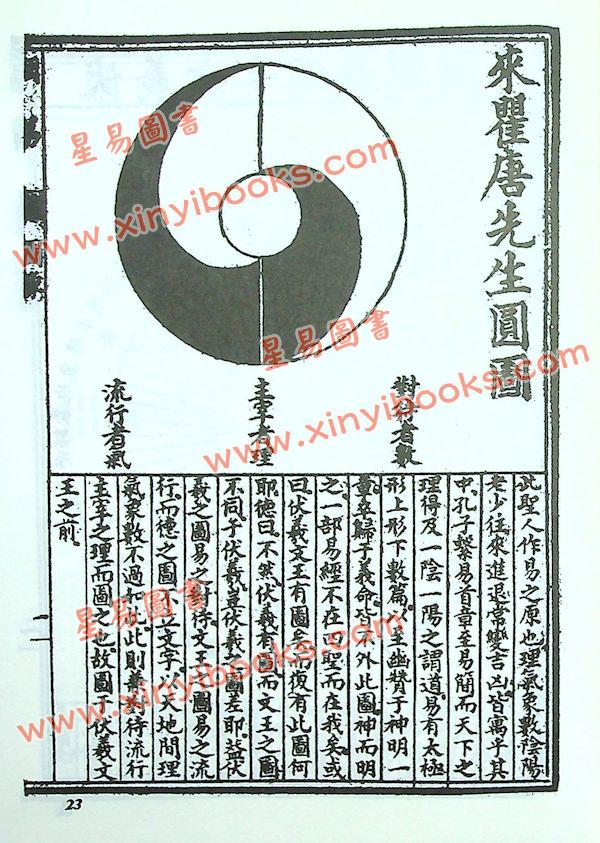 來瞿唐先生圓圖
對待者數
主宰者理
流行者氣
此聖人作易之原也理氣象數陰陽
老少往來進退常變吉凶皆寓乎其
中孔子繫易首章至易簡而天下之
理得及一陰一陽之謂道易有太極
形上形下數篇以至幽贊于神明一
章卒歸于義命皆不外此圖神而明
之一部易經不在四聖而在我矣或
曰伏羲文王有圖矣而復有此圖何
耶德曰不然伏羲有圖而文王之圖
不同于伏羲豈伏羲之圖差耶蓋伏
羲之圖易之對待文王之圖易之流
行而德之圖不立文字以天地間理
氣象數不過如此此則兼對待流行
主宰之理而圖之也故圖于伏羲文
王之前
星易圖書
www.xinyibooks.com
星易圖書
www.xinyibooks.com
23